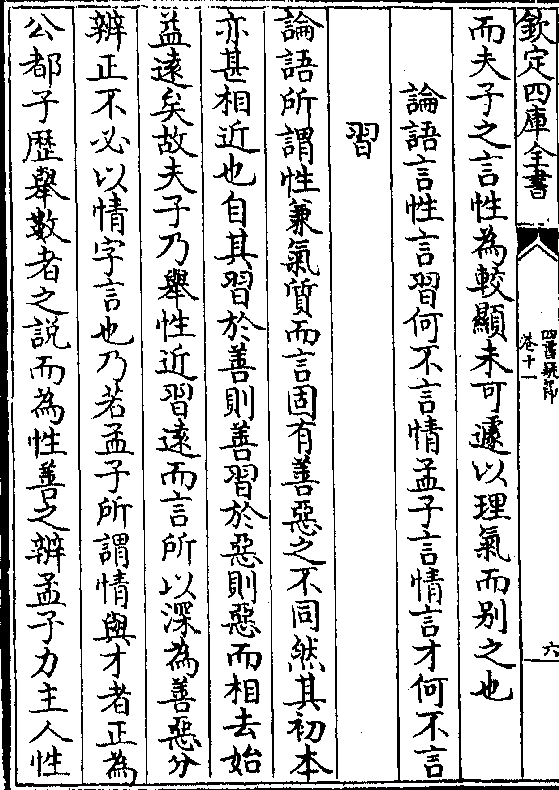 欽定四庫全書
四書疑節
卷十一
六
而夫子之言性為較顯未可遽以理氣而别之也
論語言性言習何不言情孟子言情言才何不言
習
論語所謂性兼氣質而言固有善惡之不同然其初本
亦甚相近也自其習於善則善習於惡則惡而相去始
益逺矣故夫子乃舉性近習逺而言所以深為善惡分
辨正不必以情字言也乃若孟子所謂情與才者正為
公都子歴舉數者之説而為性善之辨孟子力主人性